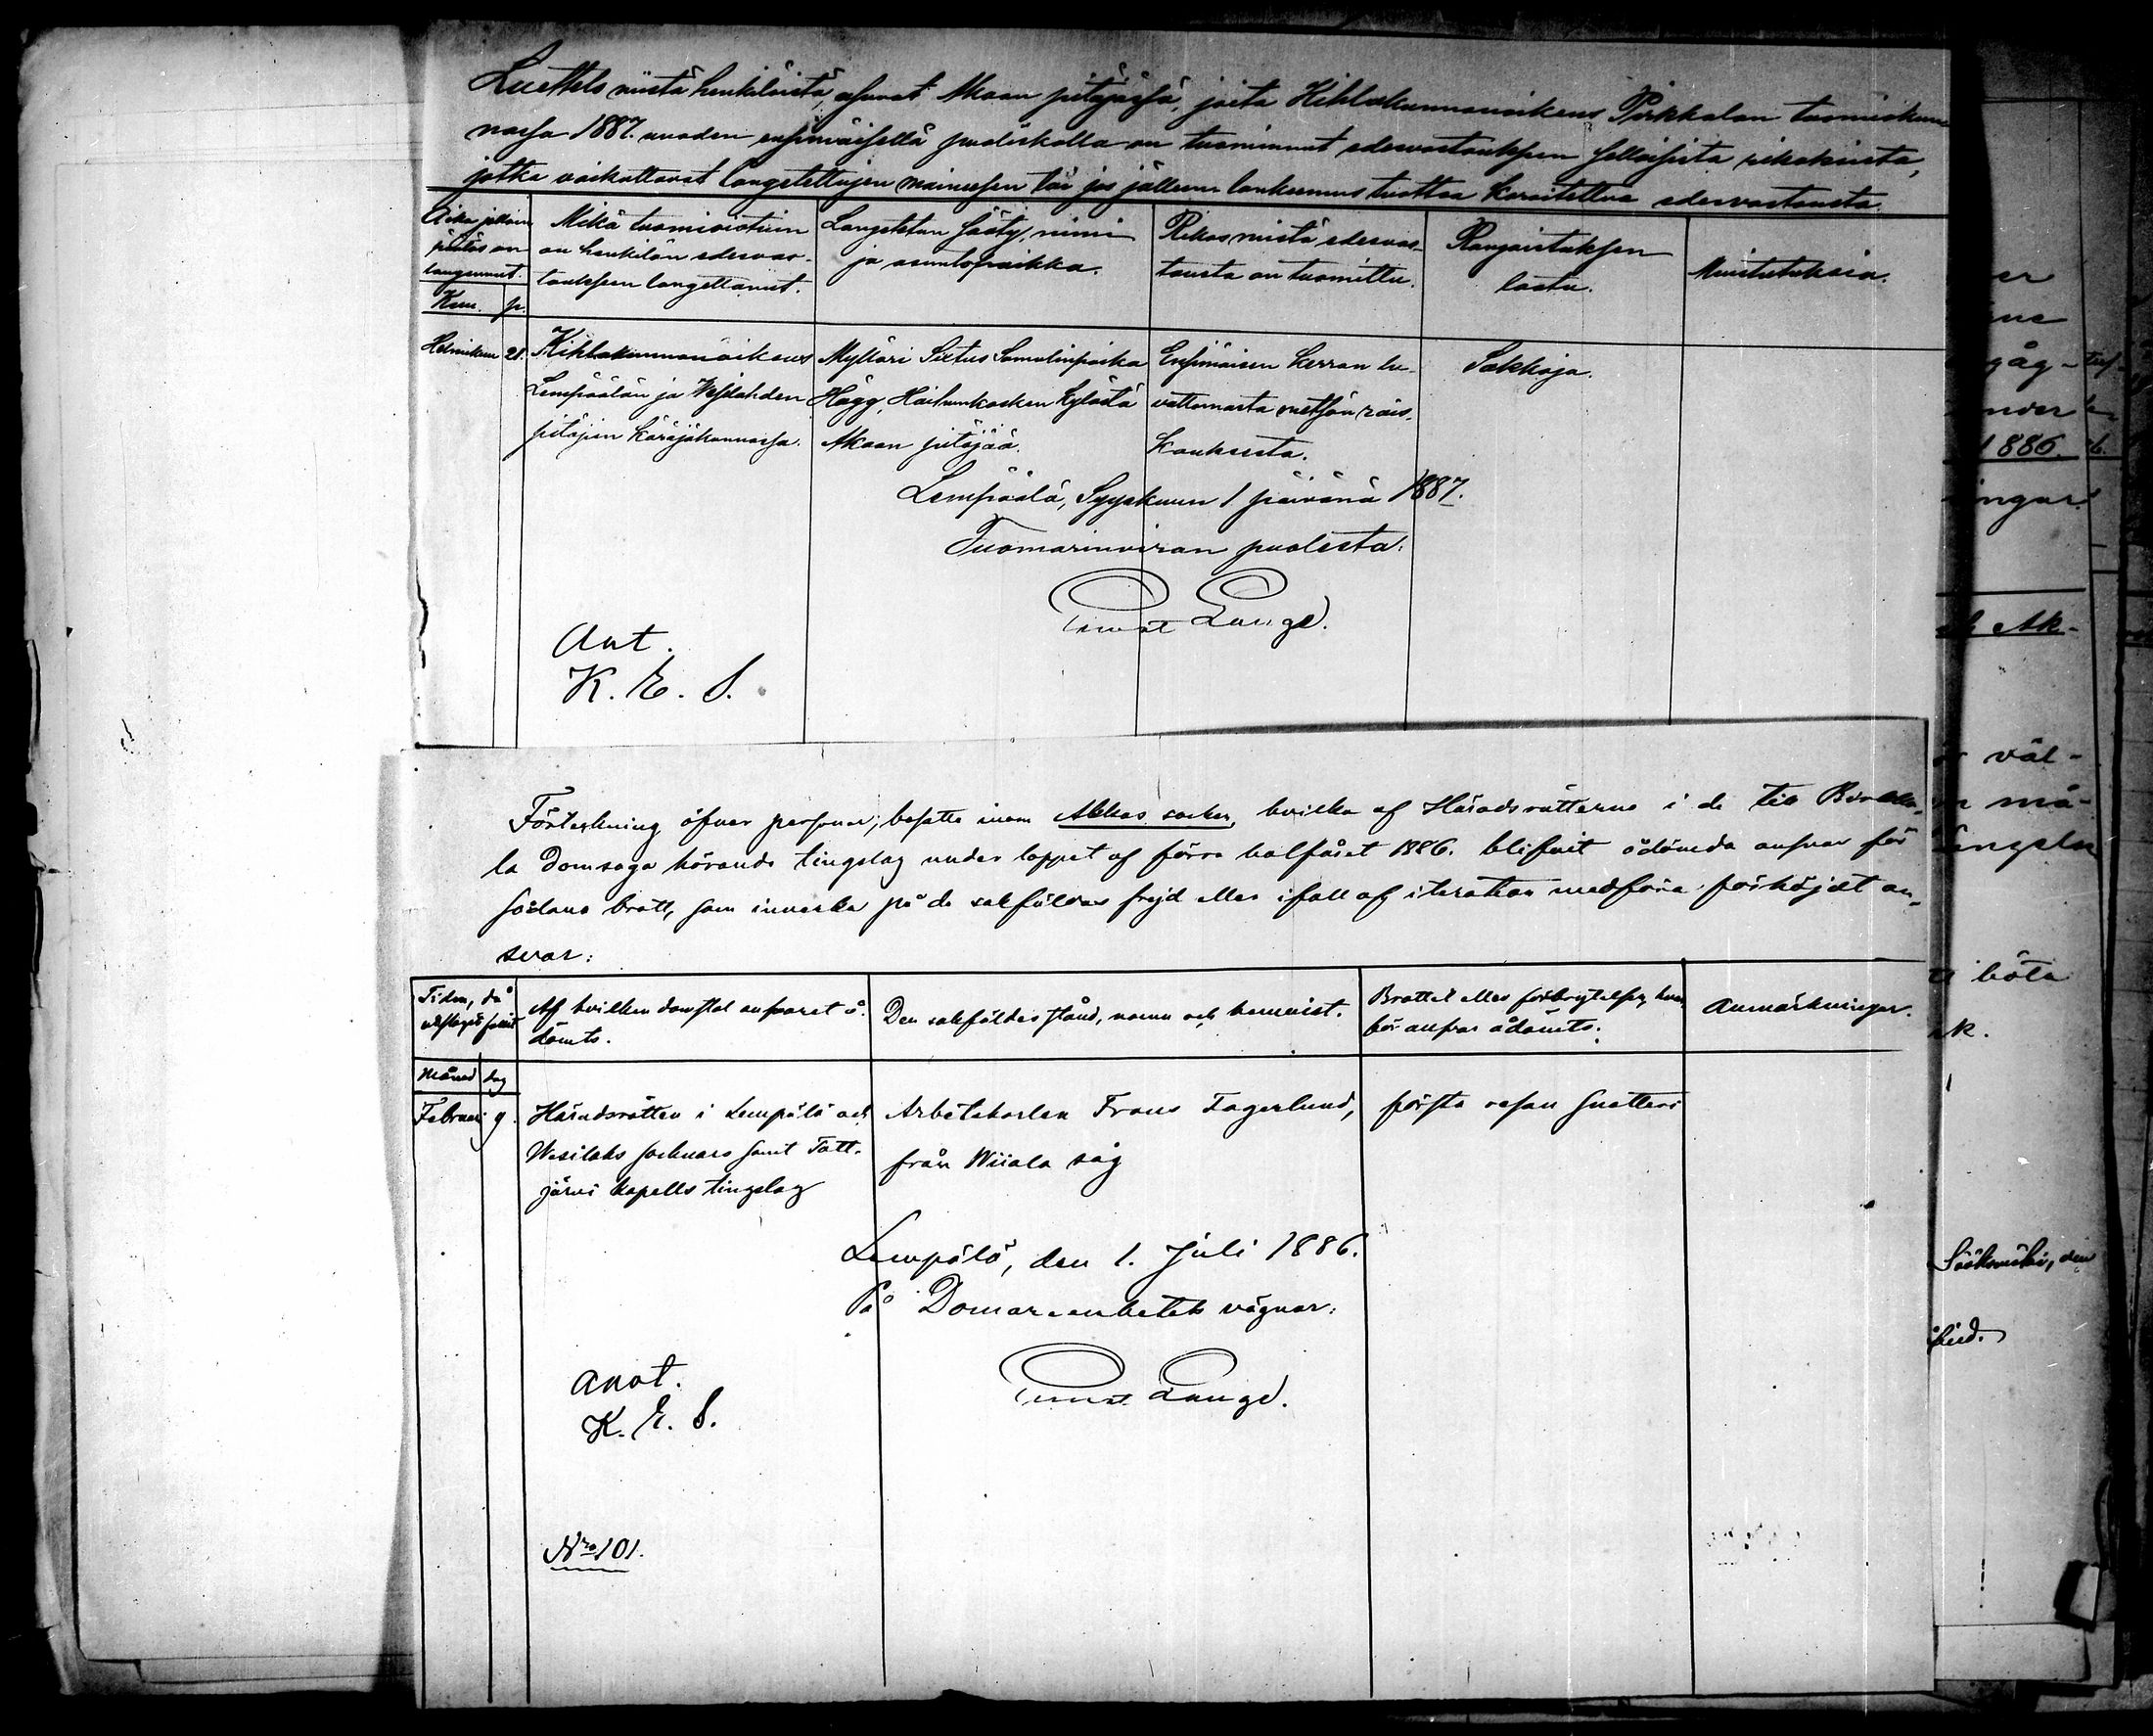 Luettelo niistä henkilöistä, asuvat Akaan pitäjässä, joita Kihlakunnanoikeus Pirkkalan tuomiokun-
nassa 1887. vuoden ensimäisellä puoliskolla on tuominnut edesvastaukseen sellaisista rikoksista,
jotka vaikuttavat langetettujen maineesen tai jos jälleen lankeemus tuottaa koroitettua edesvastausta.
Aika jolloin päätös on langennut.
Kuu. p.
Mikä tuomioistuin
on henkilön edesvas-
taukseen langettanut.
Langetetun sääty, nimi
ja asuntopaikka.
Rikos mistä edesvas-
tausta on tuomittu.
Rangaistuksen
laatu.
Muistutuksia.
Helmikuu 21. Kihlakunnanoikeus
Lempäälän ja Wesilahden
pitäjien käräjäkunnassa.
Mylläri Sixtus Samulinpoika
Hägg, Haihunkosken kylästä
Akaan pitäjää.
Ensimäisen kerran lu-
vattomasta metsän rais-
kauksesta.
Sakkoja.
Lempäälä, Syyskuun 1 päivänä 1887.
Tuomarinviran puolesta:
Ernst Lange.
Ant.
K. E. S.
Förteckning öfver personer, bosatte inom Akkas socken, hvilka af Häradsrätterne i de till Birkka-
la Domsaga hörande tingslag under loppet af förra halfåret 1886. blifvit ådömda ansvar för
sådana brott, som inverka på de sakfäldas frejd eller ifall af iteration medföra förhöjdt an-
svar:
Tiden, då
utslaget fallit
Månad dag
Af hvilken domstol ansvaret å-
dömts.
Den sakfäldes stånd, namn och hemvist.
Brottet eller förbrytelsen, hvar-
för ansvar ådömts.
Anmärkningar.
Februari 9. Häradsrätten i Lempälä och
Wesilaks socknars samt Tott-
järvi kapells tingslag
Arbetskarlen Frans Fagerlund,
från Wiiala såg
första resan snatteri
Lempälä, den 1. Juli 1886.
På Domareembetets vägnar:
Ernst Lange.
Anot.
K. E. S.
Nro 101.
gåg-
1886.
Ak-
väl-
må-
böta
Sääksmäki, den